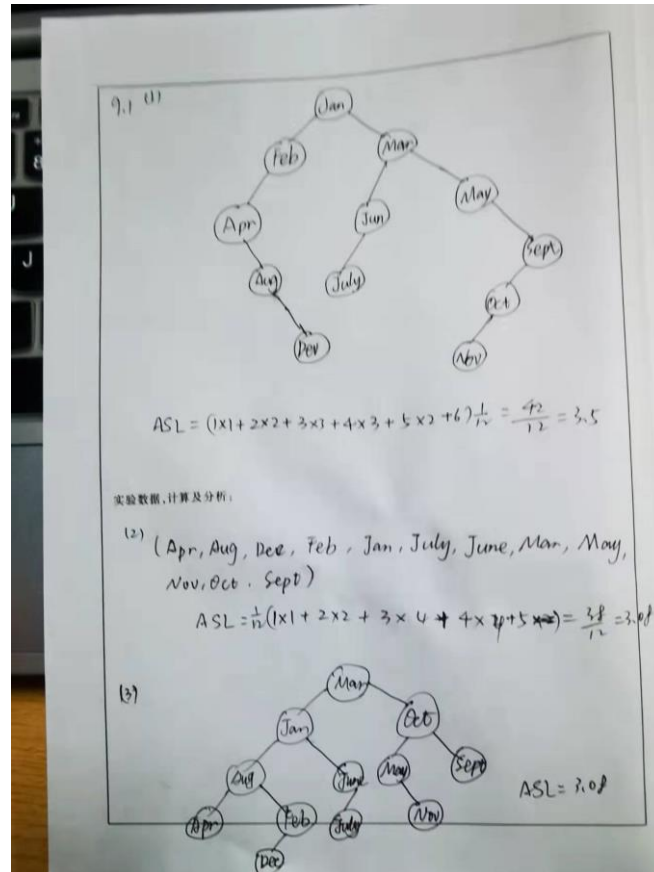 9.1 (1)
Jan
Feb Mar
Apr Jun May
Aug July Sept
Oct
Dev Nov
ASL = (1×1+2×2+3×3+4×3+5×2+6)1/12 = 42/12 = 3.5
实验数据,计算及分析:
(2) (Apr, Aug, Dec, Feb, Jan, July, June, Mar, May,
Nov, Oct. Sept)
ASL = 1/12(1×1+2×2+3×4+4×4+5) = 38/12 = 3.08
(3)
Mar
Jan Oct
Aug June May Sept
ASL = 3.08
Apr Feb July Nov
Dec